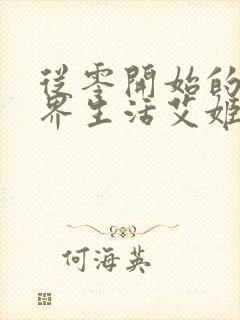 從零開始的
界生活艾姬
何海英